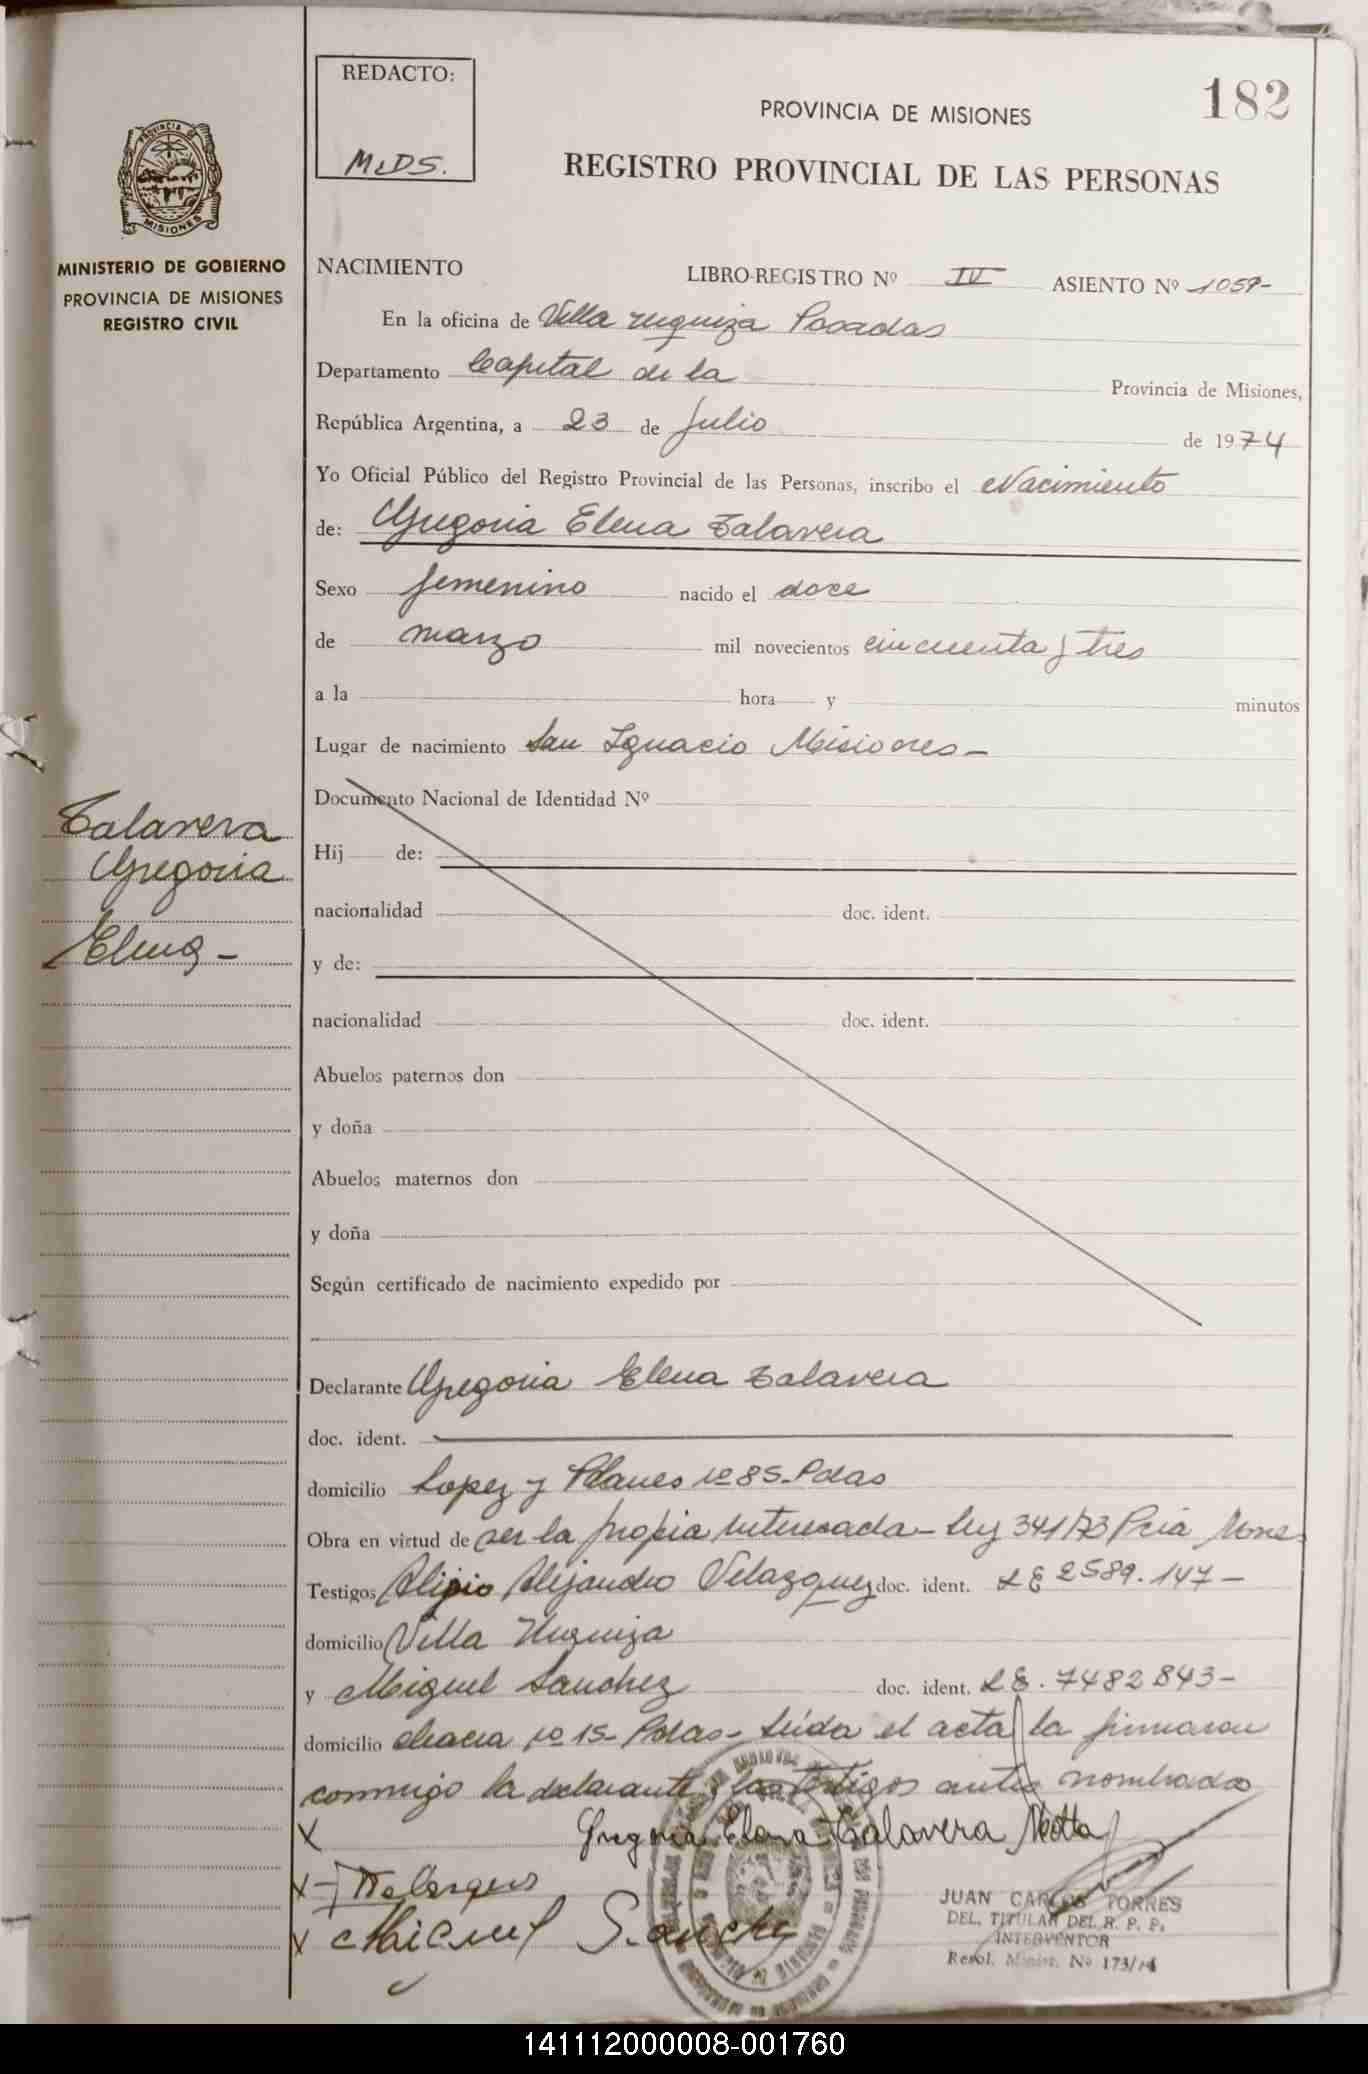 REDACTO:
M.D.S.
182
PROVINCIA DE MISIONES
REGISTRO PROVINCIAL DE LAS PERSONAS
PROVINCIA DE
MISIONES
MINISTERIO DE GOBIERNO
PROVINCIA DE MISIONES
REGISTRO CIVIL
NACIMIENTO LIBRO-REGISTRO Nº IV ASIENTO Nº 1059-
En la oficina de Villa urquiza Posadas
Departamento Capital de la Provincia de Misiones,
República Argentina, a 23 de Julio de 1974
Yo Oficial Público del Registro Provincial de las Personas, inscribo el Nacimiento
de: Gregoria Elena Talavera
Sexo femenino nacido el doce
de marzo mil novecientos cincuenta y tres
a la hora y minutos
Lugar de nacimiento San Ignacio Misiones-
Documento Nacional de Identidad Nº
Talavera
Gregoria
Elena-
Hij de:
nacionalidad doc. ident.
y de:
nacionalidad doc. ident.
Abuelos paternos don
y doña
Abuelos maternos don
y doña
Según certificado de nacimiento expedido por
Declarante Gregoria Elena Talavera
doc. ident.
domicilio Lopez y Planes nº 85-Pdas
Obra en virtud de ser la propia interesada- Ley 341/73 Pcia Mnes
Testigos Alipio Alejandro Velazquez doc. ident. LE 2589.147-
domicilio Villa Urquiza
y Miguel Sanchez doc. ident. LE. 7482843-
domicilio chacra nº 15- Pdas- Leída el acta la firmaron
conmigo la declarante y los testigos antes nombrados
X Gregoria Elena Talavera Motta
X
X Miguel Sanchez
JUAN CARLOS TORRES
DEL. TITULAR DEL R. P. P.
INTERVENTOR
Resol. Minist. Nº 173/74
141112000008-001760